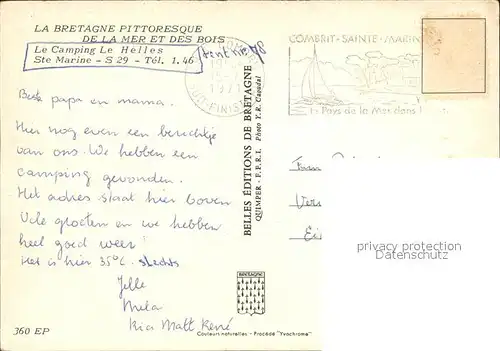 LA BRETAGNE PITTORESQUE
DE LA MER ET DES BOIS
Le Camping Le Hélles
Ste Marine - S 29 - Tél. 1.46
tent No 48
Beste papa en mama.
Hier nog even een berichtje
van ons. We hebben een
camping gevonden.
Het adres staat hier boven
Vele groeten en we hebben
heel goed weer!
Het is hier 35°C. slechts
Jelle
Meta
Ria Matt René
360 EP
Couleurs naturelles - Procédé "Yvochrome"
BRETAGNE
BELLES ÉDITIONS DE BRETAGNE
QUIMPER - P.P.R.I. Photo Y. R. Caoudal
SUD-FINIST
COMBRIT-SAINTE-MARIN
Pays de la Mer dans l
Fam
Ver
Ei
privacy protection
Datenschutz